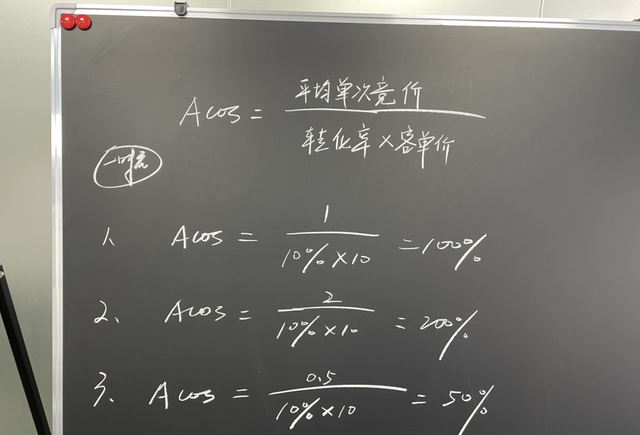 Acos = 平均单次竞价 / 转化率 × 客单价
1、 Acos = 1 / 10% × 10 = 100%
2、 Acos = 2 / 10% × 10 = 200%
3、 Acos = 0.5 / 10% × 10 = 50%